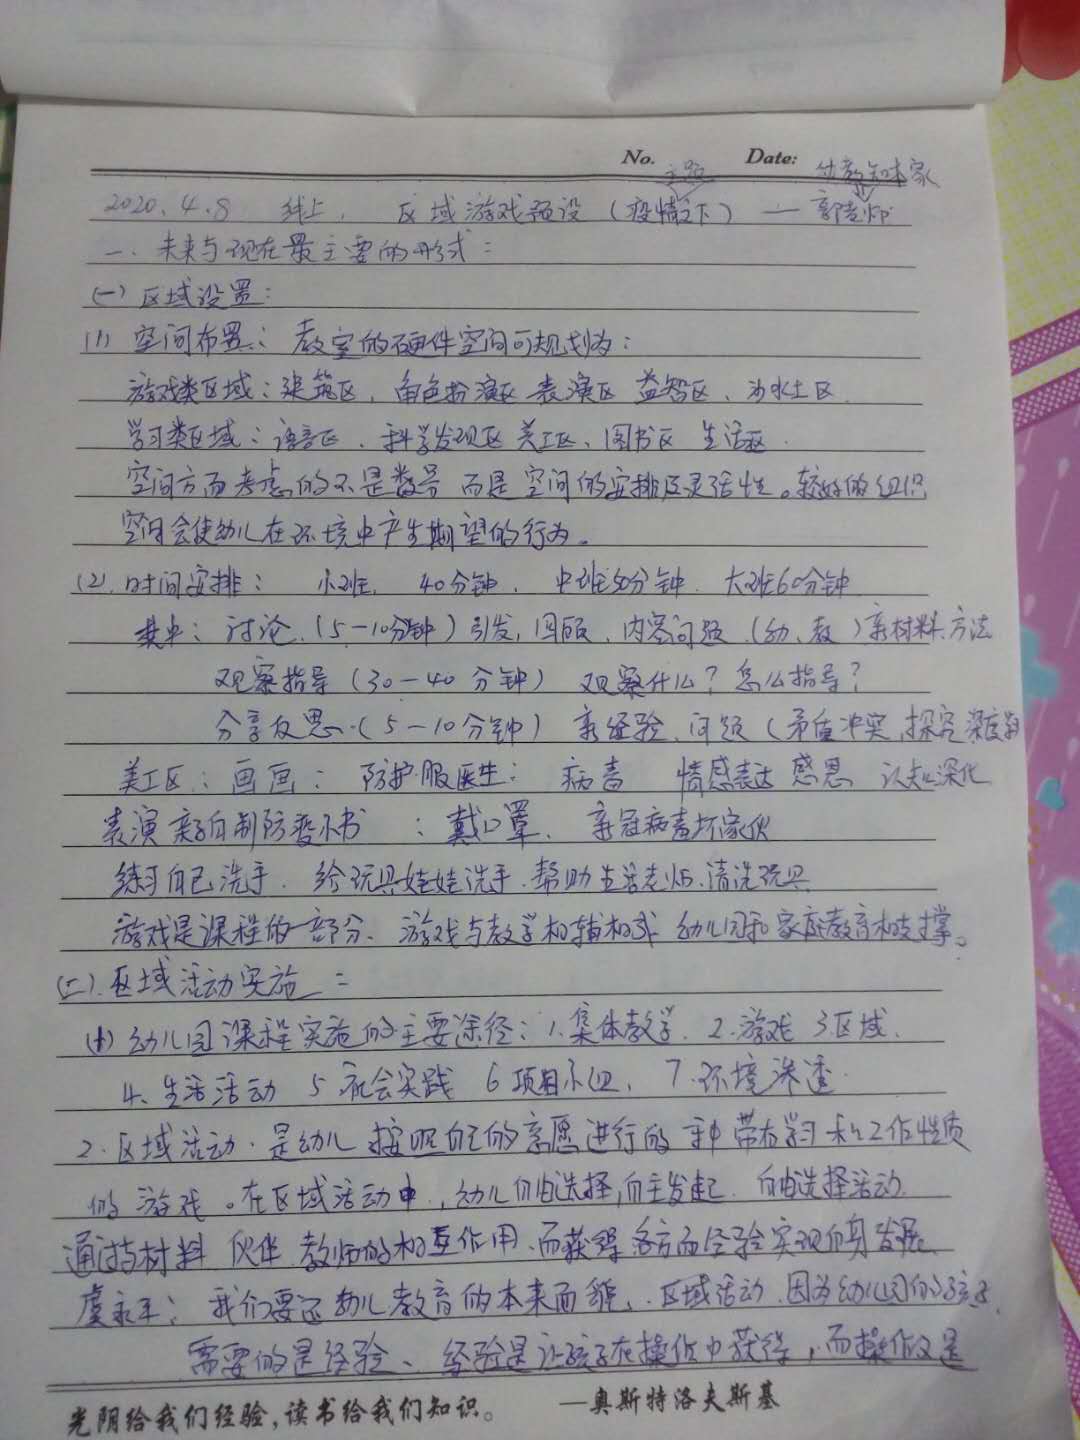 No. Date:
主题 幼教知味家
2020.4.8 线上. 区域游戏预设(疫情之下)—郭老师
一、未来与现在最主要的形式:
(一)区域设置:
(1)空间布置:教室的硬件空间可规划为:
游戏类区域:建筑区、角色扮演区 表演区 益智区、沙水土区
学习类区域:语言区、科学发现区 美工区、图书区 生活区.
空间方面考虑的不是数号 而是空间的安排及灵活性。较好的组织
空间会使幼儿在环境中产生期望的行为。
(2).时间安排: 小班. 40分钟. 中班50分钟. 大班60分钟
其中:讨论.(5-10分钟)引发,回顾、内容问题(幼、教)新材料.方法
观察指导(30-40分钟) 观察什么?怎么指导?
分享反思.(5-10分钟) 新经验.问题(矛盾冲突,探究深度
美工区:画画: 防护服医生: 病毒 情感表达 感恩 认知深化
表演 亲子自制防疫小书 :戴口罩. 新冠病毒坏家伙
练习自己洗手. 给玩具娃娃洗手.帮助生活老师.清洗玩具
游戏是课程的一部分、游戏与教学相辅相成 幼儿园和家庭教育相支撑。
(二).区域活动实施:
(1)幼儿园课程实施的主要途径:1.集体教学. 2.游戏 3区域.
4、生活活动 5 社会实践 6 项目小组、7.环境渗透.
2.区域活动.是幼儿按照自己的意愿进行的一种带有学习和工作性质
的游戏。在区域活动中,幼儿自由选择,自主发起.自由选择活动.
通过与材料 伙伴.教师的相互作用、而获得各方面经验实现自身发展.
虞永平:我们要还幼儿教育的本来面貌、.区域活动.因为幼儿园的孩子.
需要的是经验、经验是让孩子在操作中获得,而操作又是
光阴给我们经验,读书给我们知识。 —奥斯特洛夫斯基